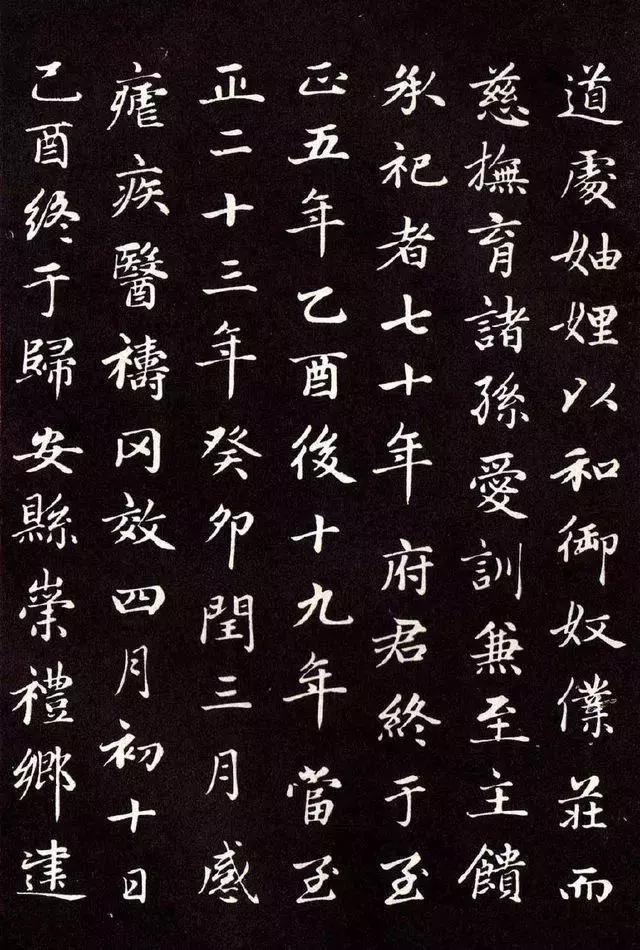 道處妯娌以和御奴僕莊而
慈撫育諸孫愛訓兼至主饋
承祀者七十年府君終于至
正五年乙酉後十九年當至
正二十三年癸卯閏三月感
瘧疾醫禱罔效四月初十日
己酉終于歸安縣崇禮鄉建